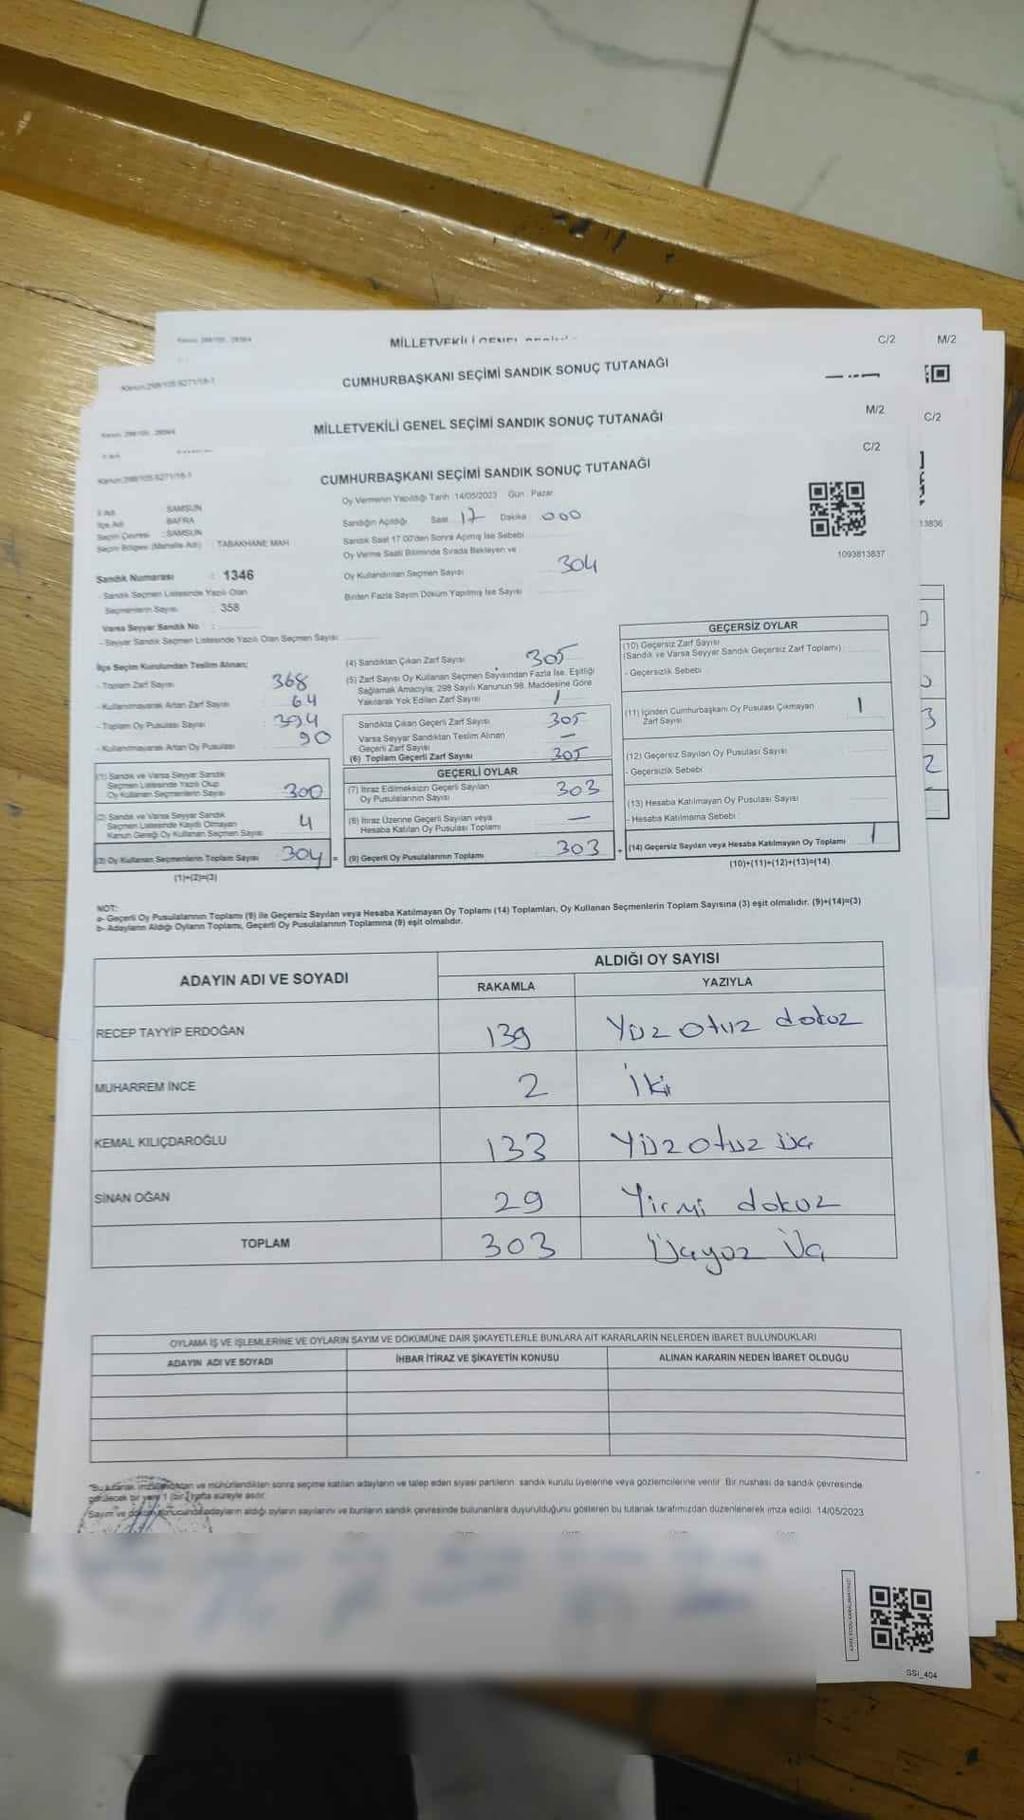 MİLLETVEKİLİ GENEL
C/2
M/2
CUMHURBAŞKANI SEÇİMİ SANDIK SONUÇ TUTANAĞI
MİLLETVEKİLİ GENEL SEÇİMİ SANDIK SONUÇ TUTANAĞI
M/2
C/2
C/2
CUMHURBAŞKANI SEÇİMİ SANDIK SONUÇ TUTANAĞI
İl Adı : SAMSUN
İlçe Adı : BAFRA
Seçim Çevresi : SAMSUN
Seçim Bölgesi (Mahalle Adı) : TABAKHANE MAH.
Sandık Numarası : 1346
- Sandık Seçmen Listesinde Yazılı Olan
Seçmenlerin Sayısı : 358
Varsa Seyyar Sandık No :
- Seyyar Sandık Seçmen Listesinde Yazılı Olan Seçmen Sayısı:
Oy Vermenin Yapıldığı Tarih :14/05/2023 Gün : Pazar
Sandığın Açıldığı Saat 17 Dakika 000
Sandık Saat 17.00'den Sonra Açılmış İse Sebebi
Oy Verme Saati Bitiminde Sırada Bekleyen ve
Oy Kullandırılan Seçmen Sayısı 304
Birden Fazla Sayım Döküm Yapılmış İse Sayısı
1093813837
İlçe Seçim Kurulundan Teslim Alınan;
- Toplam Zarf Sayısı 368
- Kullanılmayarak Artan Zarf Sayısı 64
- Toplam Oy Pusulası Sayısı 394
- Kullanılmayarak Artan Oy Pusulası 90
(1) Sandık ve Varsa Seyyar Sandık
Seçmen Listesinde Yazılı Olup
Oy Kullanan Seçmenlerin Sayısı 300
(2) Sandık ve Varsa Seyyar Sandık
Seçmen Listesinde Kayıtlı Olmayan
Kanun Gereği Oy Kullanan Seçmen Sayısı 4
(3) Oy Kullanan Seçmenlerin Toplam Sayısı 304
(1)+(2)=(3)
(4) Sandıktan Çıkan Zarf Sayısı 305
(5) Zarf Sayısı Oy Kullanan Seçmen Sayısından Fazla İse, Eşitliği
Sağlamak Amacıyla; 298 Sayılı Kanunun 98. Maddesine Göre
Yakılarak Yok Edilen Zarf Sayısı 1
Sandıkta Çıkan Geçerli Zarf Sayısı 305
Varsa Seyyar Sandıktan Teslim Alınan
Geçerli Zarf Sayısı —
(6) Toplam Geçerli Zarf Sayısı 305
GEÇERLİ OYLAR
(7) İtiraz Edilmeksizin Geçerli Sayılan
Oy Pusulalarının Sayısı 303
(8) İtiraz Üzerine Geçerli Sayılan veya
Hesaba Katılan Oy Pusulası Toplamı —
(9) Geçerli Oy Pusulalarının Toplamı 303
GEÇERSİZ OYLAR
(10) Geçersiz Zarf Sayısı
(Sandık ve Varsa Seyyar Sandık Geçersiz Zarf Toplamı)
- Geçersizlik Sebebi
(11) İçinden Cumhurbaşkanı Oy Pusulası Çıkmayan
Zarf Sayısı 1
(12) Geçersiz Sayılan Oy Pusulası Sayısı
- Geçersizlik Sebebi
(13) Hesaba Katılmayan Oy Pusulası Sayısı
- Hesaba Katılmama Sebebi
(14) Geçersiz Sayılan veya Hesaba Katılmayan Oy Toplamı 1
(10)+(11)+(12)+(13)=(14)
NOT:
a- Geçerli Oy Pusulalarının Toplamı (9) ile Geçersiz Sayılan veya Hesaba Katılmayan Oy Toplamı (14) Toplamları, Oy Kullanan Seçmenlerin Toplam Sayısına (3) eşit olmalıdır. (9)+(14)=(3)
b- Adayların Aldığı Oyların Toplamı, Geçerli Oy Pusulalarının Toplamına (9) eşit olmalıdır.
ADAYIN ADI VE SOYADI
ALDIĞI OY SAYISI
RAKAMLA YAZIYLA
RECEP TAYYİP ERDOĞAN 139 Yüz otuz dokuz
MUHARREM İNCE 2 İki
KEMAL KILIÇDAROĞLU 133 Yüz otuz üç
SİNAN OĞAN 29 Yirmi dokuz
TOPLAM 303 Üçyüz Üç
OYLAMA İŞ VE İŞLEMLERİNE VE OYLARIN SAYIM VE DÖKÜMÜNE DAİR ŞİKAYETLERLE BUNLARA AİT KARARLARIN NELERDEN İBARET BULUNDUKLARI
ADAYIN ADI VE SOYADI İHBAR İTİRAZ VE ŞİKAYETİN KONUSU ALINAN KARARIN NEDEN İBARET OLDUĞU
*Bu tutanak imzalandıktan ve mühürlendikten sonra seçime katılan adayların ve talep eden siyasi partilerin, sandık kurulu üyelerine veya gözlemcilerine verilir. Bir nüshası da sandık çevresinde
görülecek bir yere 1 (bir) hafta süreyle asılır.
Sayım ve döküm sonucunda adayların aldığı oyların sayılarını ve bunların sandık çevresinde bulunanlara duyurulduğunu gösteren bu tutanak tarafımızdan düzenlenerek imza edildi. 14/05/2023
SSİ_404